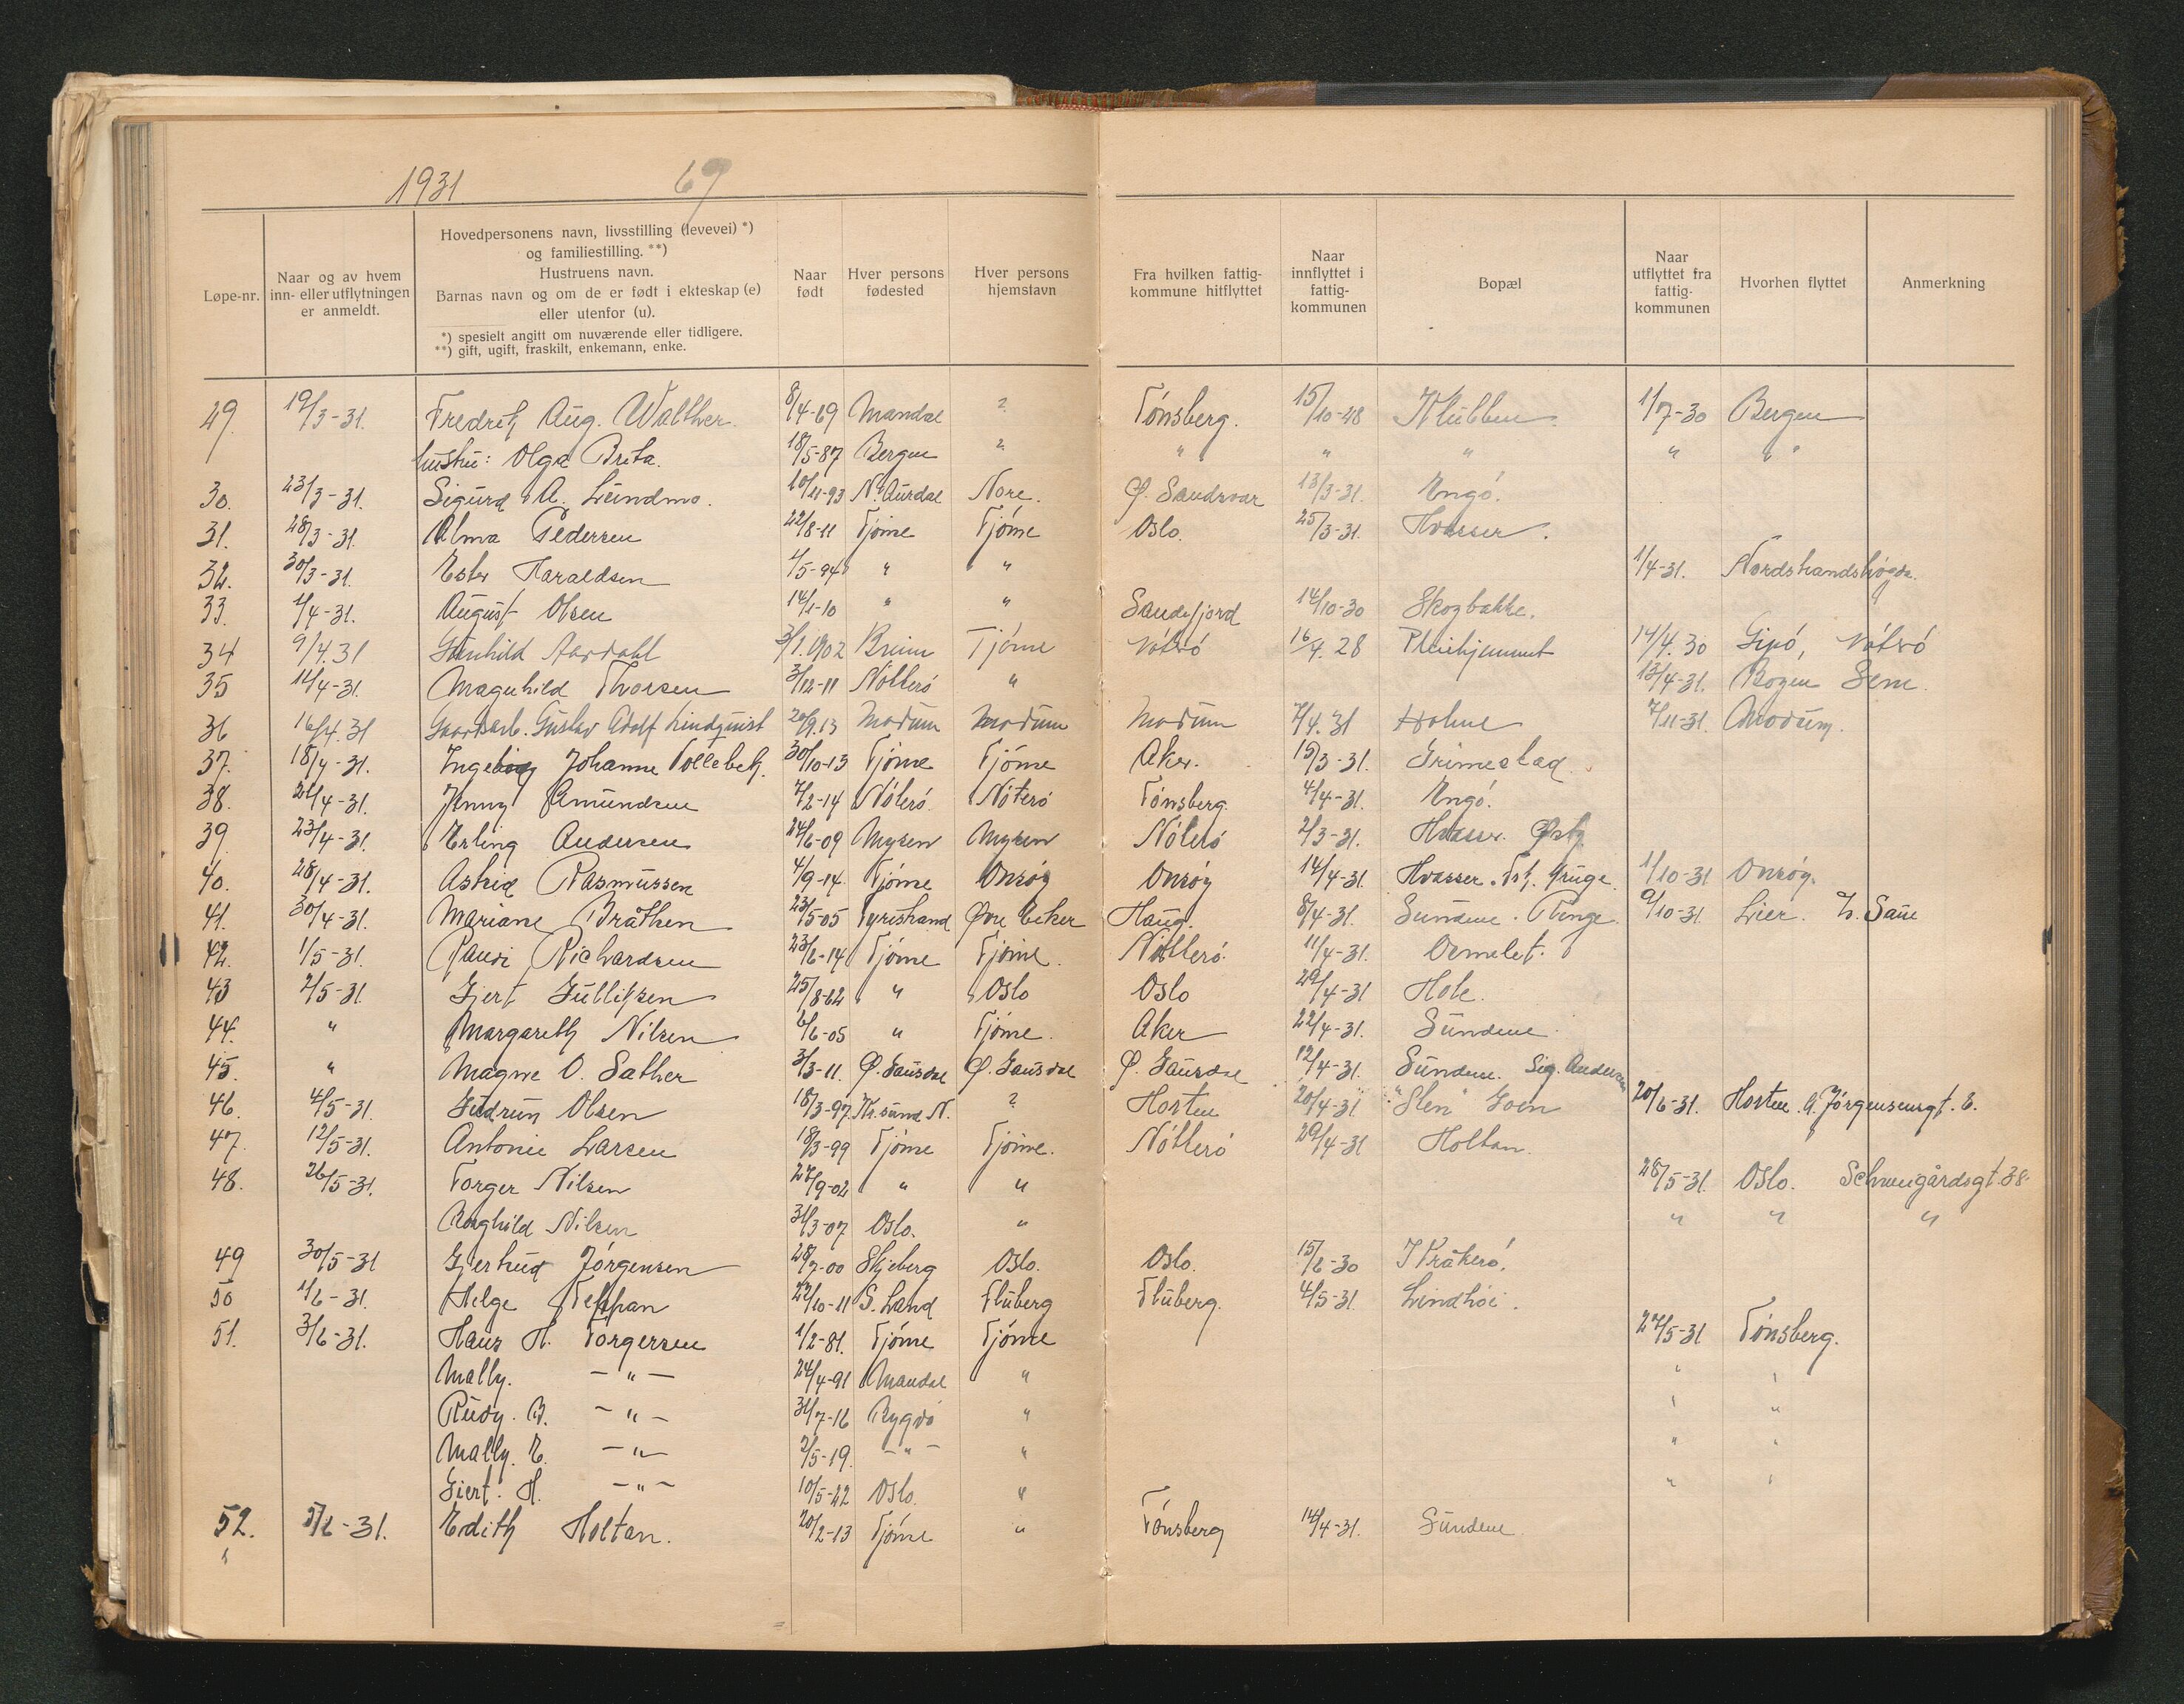 1931 69
Løpe-nr. Naar og av hvem inn- eller utflytningen er anmeldt. Hovedpersonens navn, livsstilling (levevei) *) og familiestilling. **) Hustruens navn. Barnas navn og om de er født i ekteskap (e) eller utenfor (u). *) spesielt angitt om nuværende eller tidligere. **) gift, ugift, fraskilt, enkemann, enke. Naar født Hver persons fødested Hver persons hjemstavn Fra hvilken fattigkommune hitflyttet Naar innflyttet i fattigkommunen Bopæl Naar utflyttet fra fattigkommunen Hvorhen flyttet Anmerkning
29. 19/3-31. Fredrik Aug. Walther. 8/4-69 Mandal ? Tønsberg. 15/10-28 Klubben 1/7-30 Bergen
hustru: Olga Brita. 18/5-87 Bergen ? " " " " " "
30. 23/3-31. Sigurd A. Lundmo. 10/11-93 N. Aurdal Nore. Ø. Sandsvær 13/3-31. Engø.
31. 28/3-31. Alma Pedersen 22/8-11 Tjøme Tjøme Oslo. 25/3-31. Hvasser.
32. 30/3-31. Ester Haraldsen 1/5-94 " " 1/4-31. Nordstrandshøgda.
33. 1/4-31. August Olsen 14/1-10 " " Sandefjord 14/10-30 Skogbakke.
34 9/4.31 Gunhild Aardahl 3/1.1902 Tjøme Nøtrø 16/4.28 Pleiehjemmet 14/4.30 Gipø, Nøtrø
35 11/4-31. Magnhild Thorsen 3/12-11 Nøtterø " 13/4-31. Bogen Sem.
36 16/4.31 Gaardsarb. Gustav Adolf Lindquist 20/9.13 Modum Modum Modum 7/4.31 Holme 7/11-31. Modum.
37. 18/4-31. Ingeborg Johanne Tollebek. 30/10-13 Tjøme Tjøme Aker. 15/3-31. Grimestad.
38. 21/4-31. Jenny Amundsen 7/2-14 Nøterø Nøterø Tønsberg. 4/4-31. Engø.
39. 23/4-31. Erling Andersen 24/6-09 Mysen Mysen Nøterø 2/3-31. Hvasser. Østg
40. 28/4-31. Astrid Rasmussen 4/9-14. Tjøme Onsøy Onsøy 14/4-31. Hvasser. 1/10-31 Onsøy.
41. 30/4-31. Mariane Bråthen 23/5-05 Tyristrand Øvre Eeker Haug. 8/4-31. Sundene. Ringe. 9/10-31. Lier.
42. 1/5-31. Randi Richardsen 23/6-14 Tjøme Tjøme. Nøtterø. 11/4-31. Ormelet.
43 2/5-31. Gjert Gullifsen 25/8-62 " Oslo Oslo 29/4-31 Hole.
44. " Margareth Nilsen 6/6-05 " Tjøme. Aker 22/4-31. Sundene.
45. " Magne O. Sather 3/3-11. Ø. Gausdal Ø. Gausdal Ø. Gausdal 12/4-31. Sundene. Sig. Andersen
46. 4/5-31. Gudrun Olsen 18/3-97. Kr.sund N. ? Horten 20/4-31 "Sten" Goen 20/6-31. Horten. A. Jørgensensgt. 8.
47. 12/5-31. Antonie Larsen 18/3-99 Tjøme Tjøme. Nøtterø 29/4-31 Holtan.
48. 26/5-31. Torger Nilsen 27/9-02 " " 28/5-31. Oslo. Schweigårdsgt. 38.
Raghild Nilsen 31/3-07 Oslo. " " " "
49 30/5-31 Gjertrud Jørgensen 28/7-00 Skjeberg Oslo. Oslo. 15/6-30 Kråkerø.
50 1/6-31. Helge 22/10-11 S. Land Fluberg Fluberg. 4/5-31. Lindhøi.
51. 3/6-31. Hans H. Torgersen 1/2-81. Tjøme Tjøme 27/5-31 Tønsberg.
Mally. -"- 24/4-91 Mandal " " "
Rudy. B. -"- 31/7-16 Bygdø " " "
Mally. E. -"- 2/5-19. -"- " " "
Giert. H. -"- 10/5-22 Oslo. " " "
52. 5/6-31. Edith Holtan. 20/2-13 Tjøme " Tønsberg 14/4-31. Sundene.